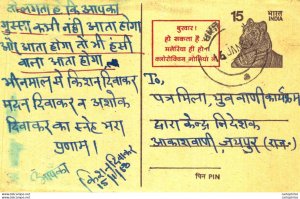 तो लगता है कि आपको
गुस्सा कभी नहीं आता होगा
ओर आता होगा तो भी हंसी
वाला आता होगा।
भीनमाल में किशन दिवाकर
मदन दिवाकर व अशोक
दिवाकर का स्नेह भरा
प्रणाम।
आपका
किशन दिवाकर
बुखार?
हो सकता है
मलेरिया ही हो
क्लोरोक्विन गोलियां लें
15
भारत
INDIA
To,
पत्र मिला, युव वाणी कार्यक्रम
द्वारा केन्द्र निदेशक
आकाशवाणी, जयपुर (राज.)
पिन PIN